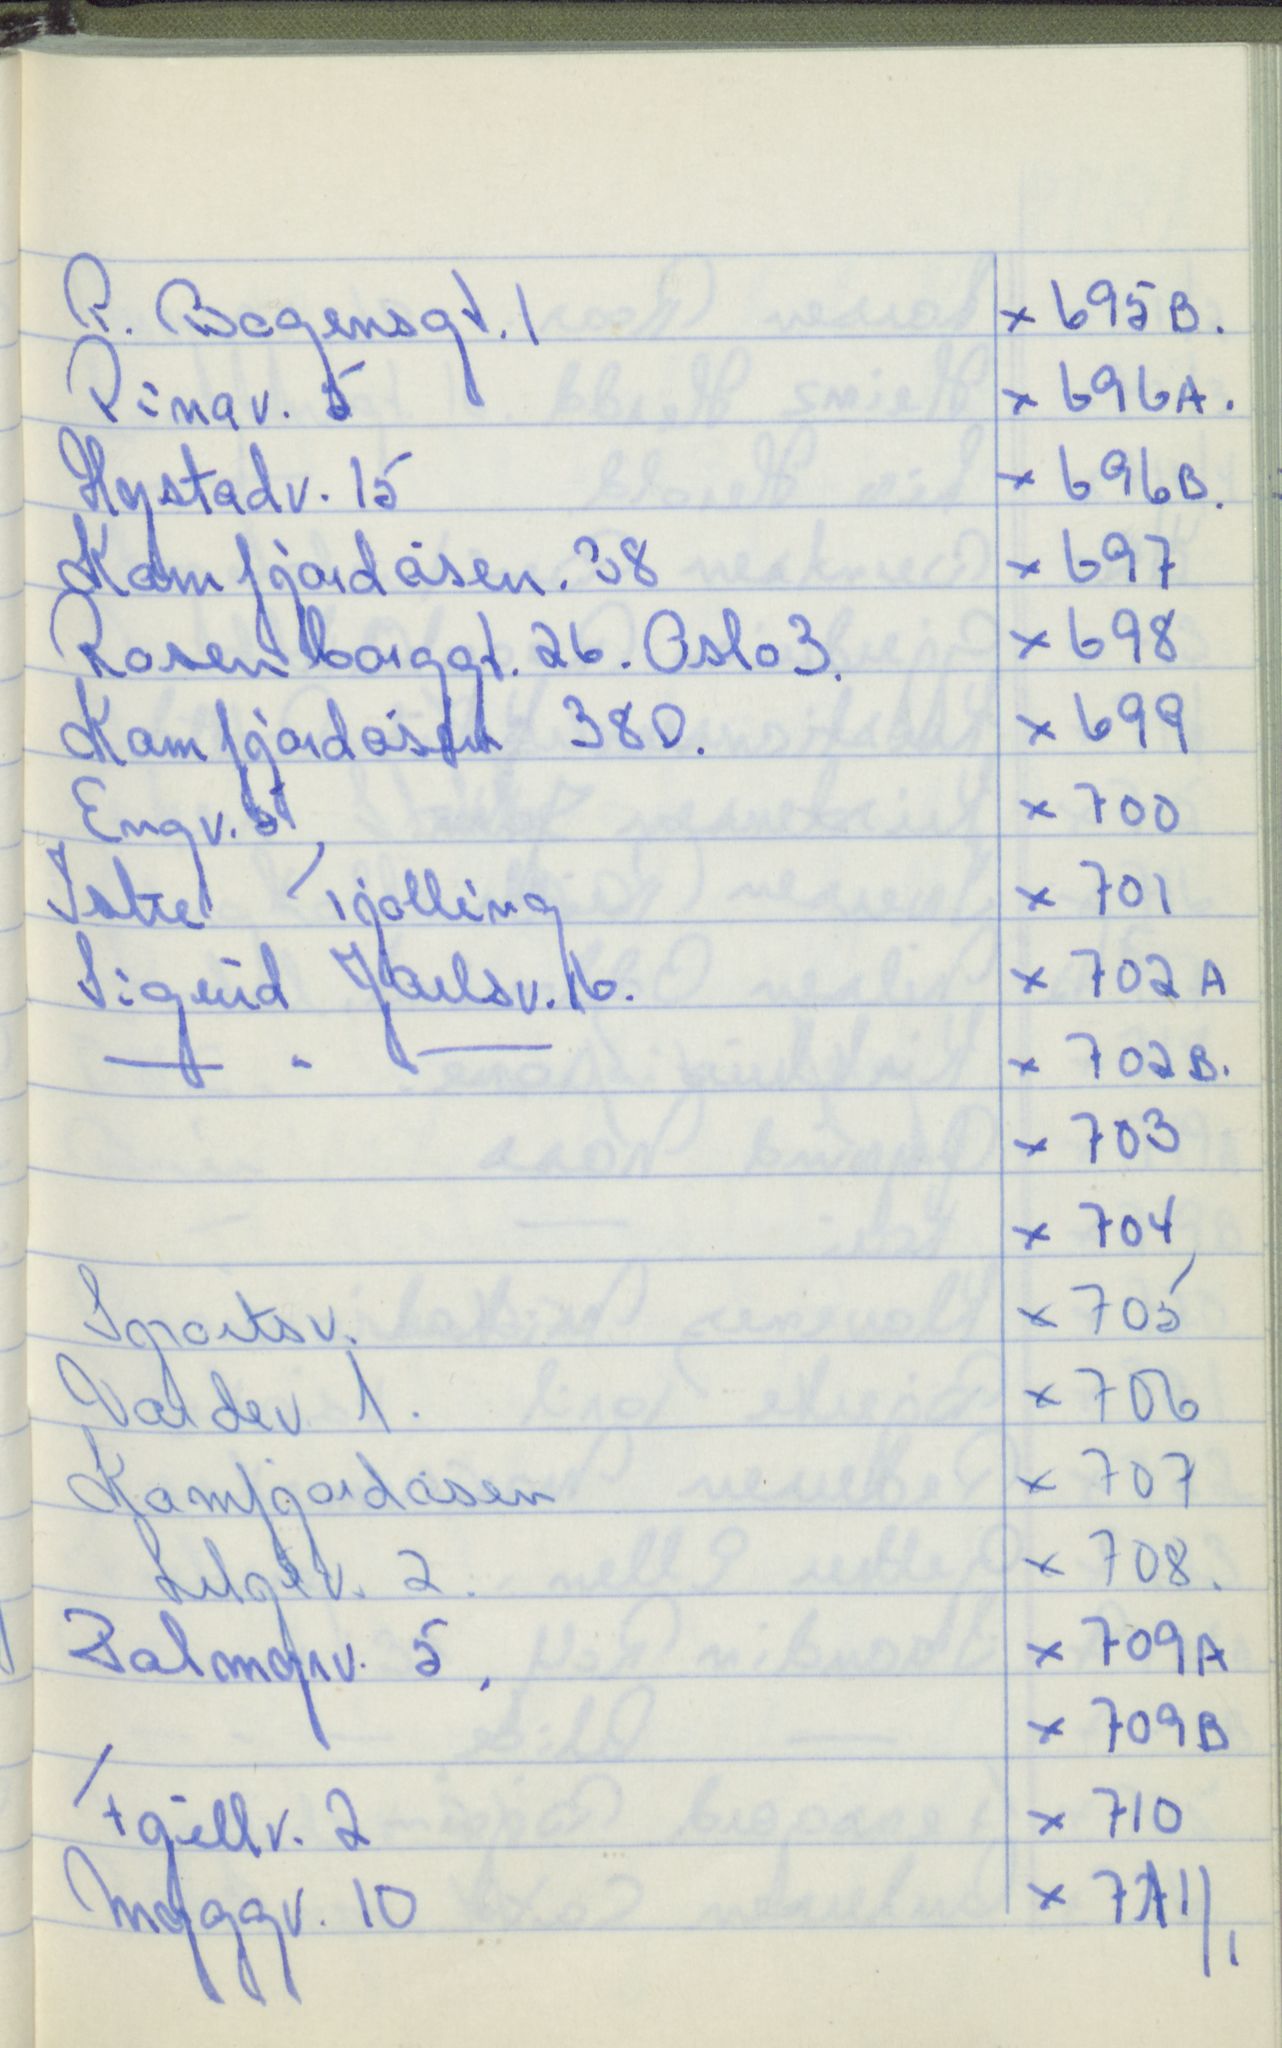 P. Bogensgt. 1 x 695B.
Ringv. 5 x 696A.
Hystadv. 15 x 696B.
Kamfjordåsen. 38 x 697
Rosenborggt. 26. Oslo 3. x 698
Kamfjordåsen 38D. x 699
Engv. 5 x 700
Istre Tjølling x 701
Sigurd Jarlsv. 16. x 702A
— " — x 702B.
x 703
x 704
Sportsv. x 705
Vardev 1. x 706
Kamfjordåsen x 707
2. x 708.
5, x 709A
x 709B
2 x 710
Myggv. 10 x 711